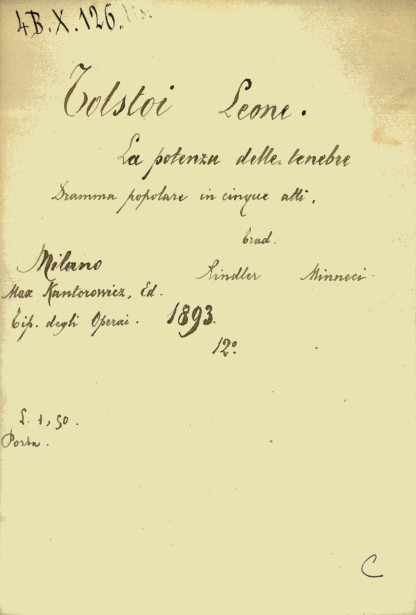 4B.X.126.
Tolstoi Leone.
La potenza delle tenebre
Dramma popolare in cinque atti.
trad.
Milano Lindler Minneci.
Max Kantorowicz, Ed.
Tip. degli Operai. 1893.
12º
L. 1,50.
Porta.
C